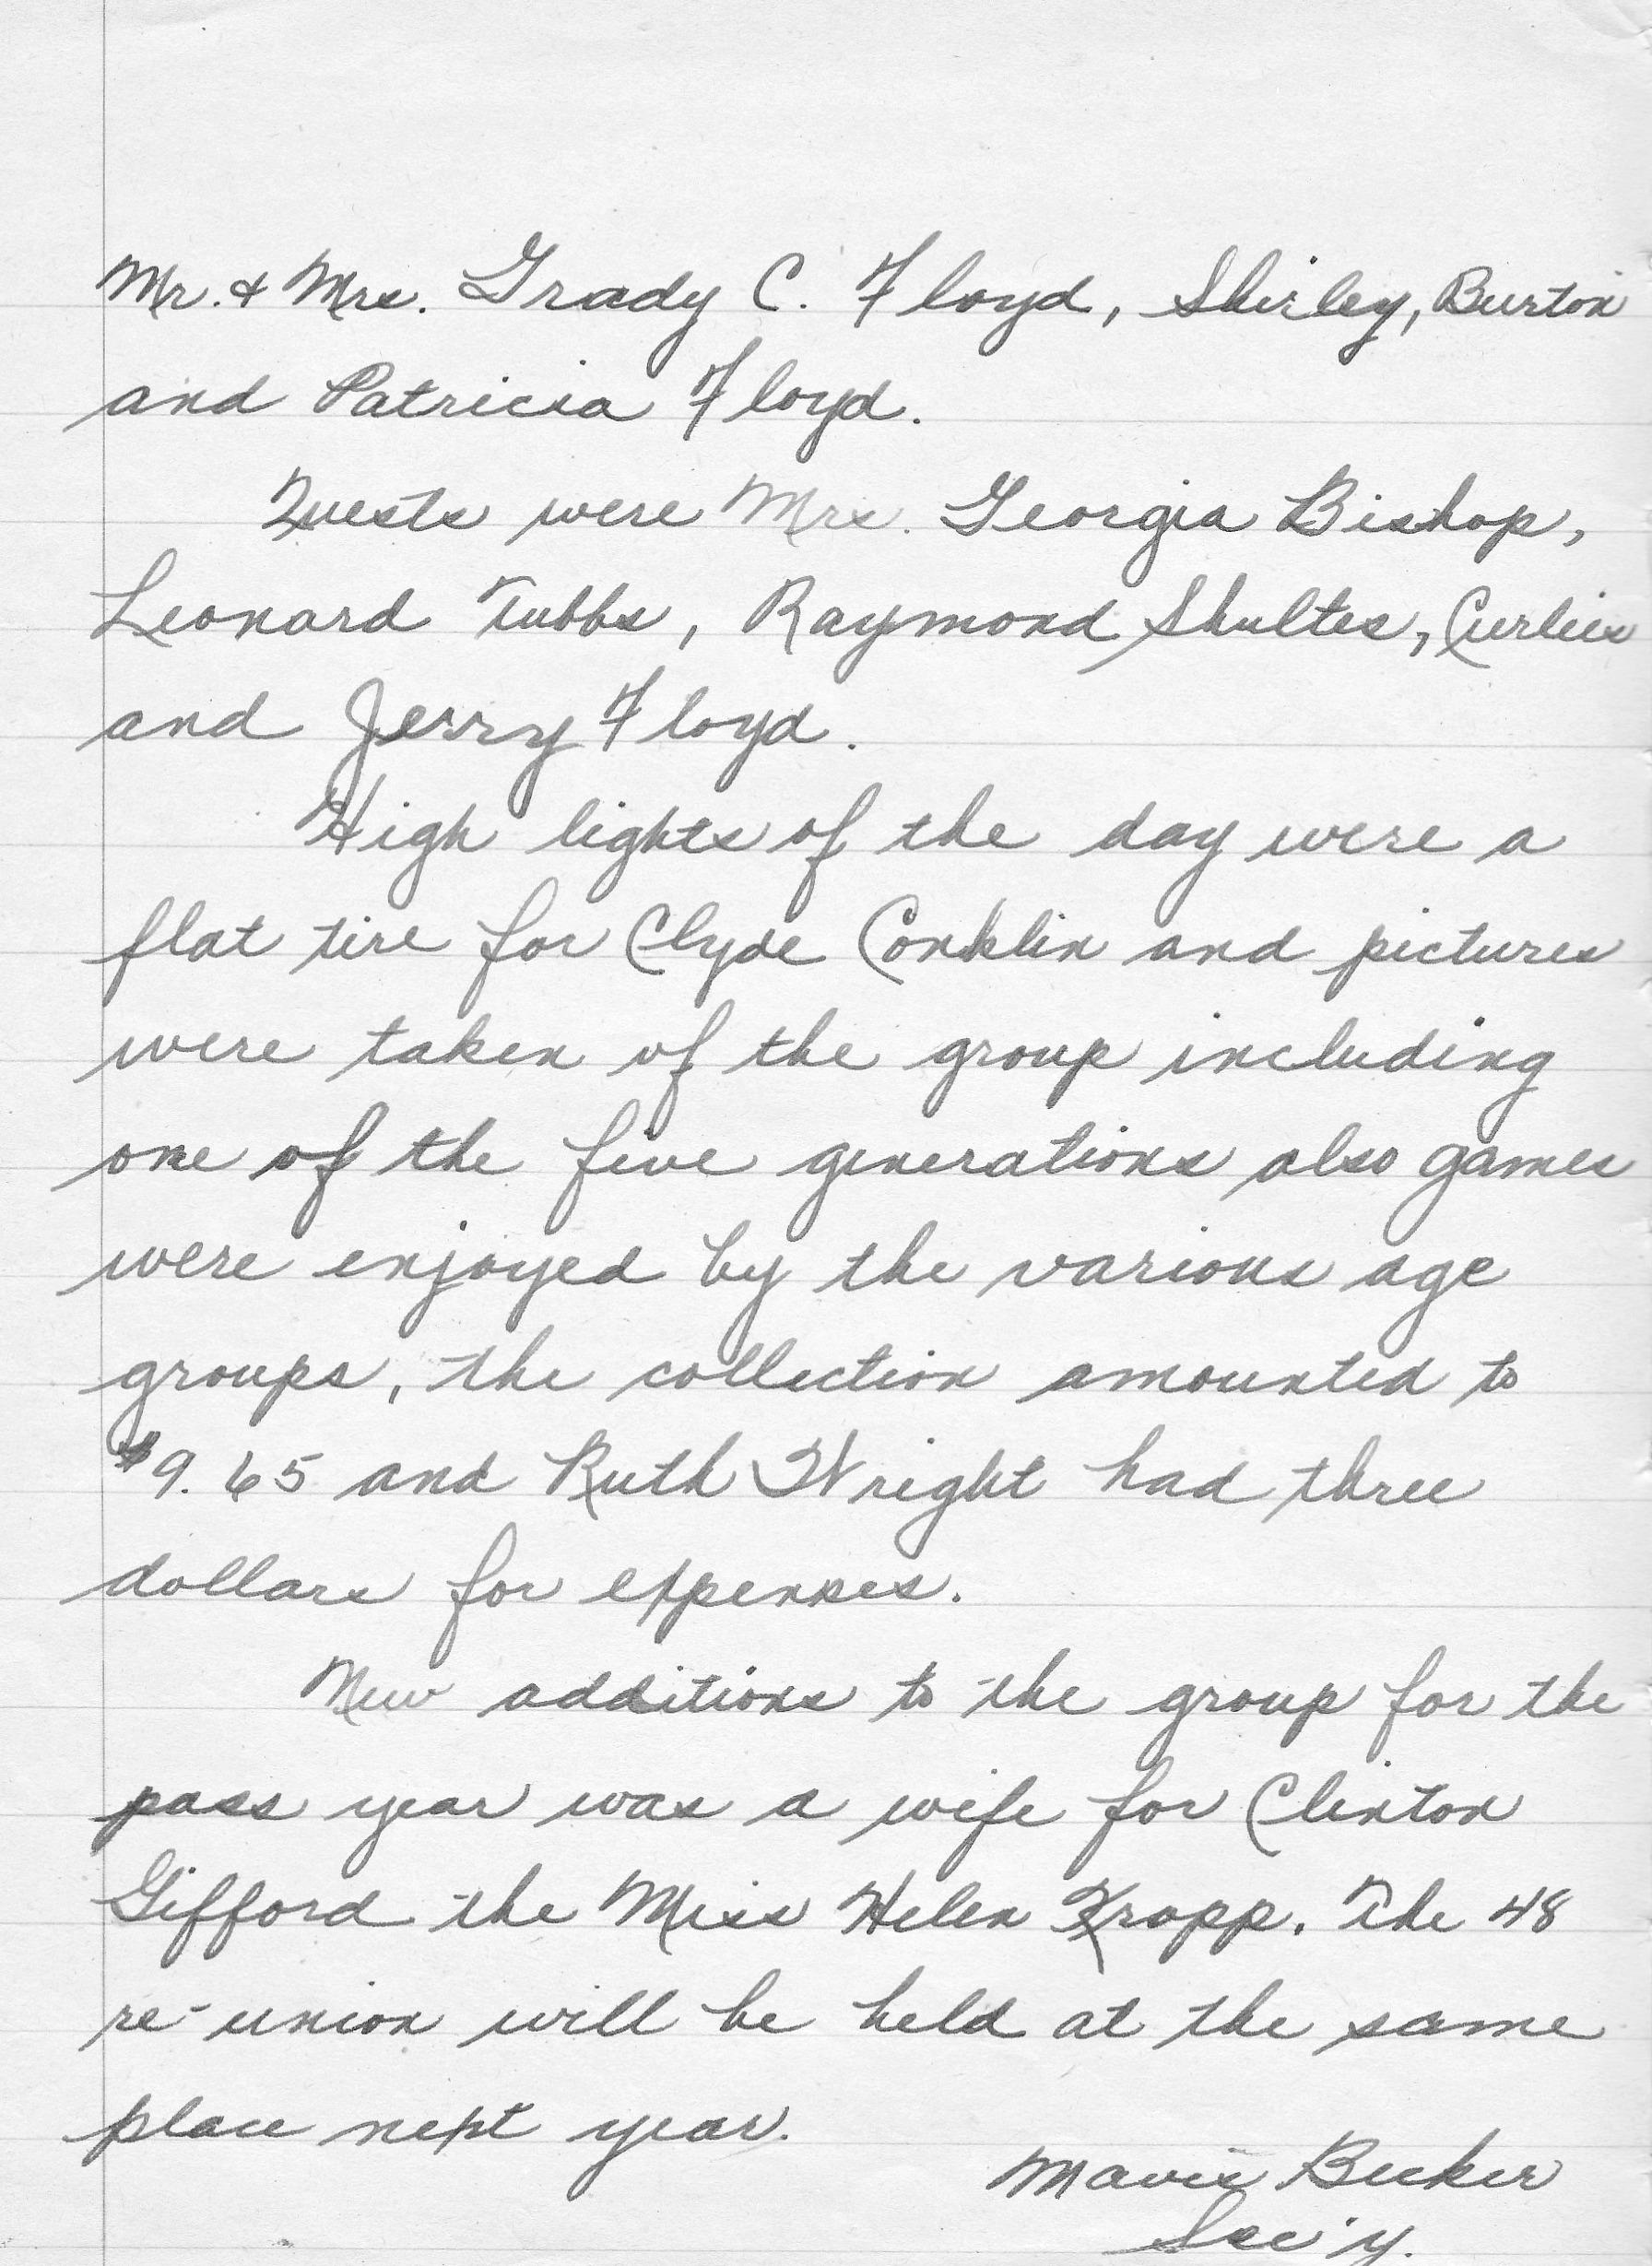 Mr. & Mrs. Grady C. Floyd, Shirley, Burton
and Patricia Floyd.
Guests were Mrs. Georgia Bishop,
Leonard Tubbs, Raymond Shultes,
and Jerry Floyd.
High lights of the day were a
flat tire for Clyde Conklin and pictures
were taken of the group including
one of the five generations also games
were enjoyed by the various age
groups, the collection amounted to
$9.65 and Ruth Wright had three
dollars for expenses.
New additions to the group for the
pass year was a wife for Clinton
Gifford the Miss Helen Kropp. The 48
re-union will be held at the same
place next year.
Mavis Becker
Sec'y.